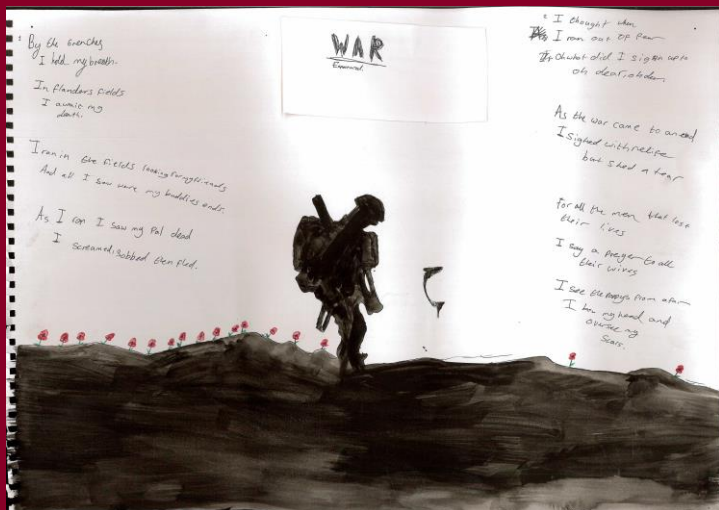 WAR
By the trenches
I held my breath.
In flanders fields
I await my
death.
I ran in the fields looking for my friends
And all I saw were my buddies ends.
As I ran I saw my Pal dead
I screamed, sobbed then fled.
I thought when
I ran out of fear
Oh what did I sign up to
oh dear, oh dear.
As the war came to an end
I sighed with relife
but shed a tear
for all the men that lost
their lives
I say a preyer to all
their wives
I see the from afar
I bow my head and
oversee my
scars.